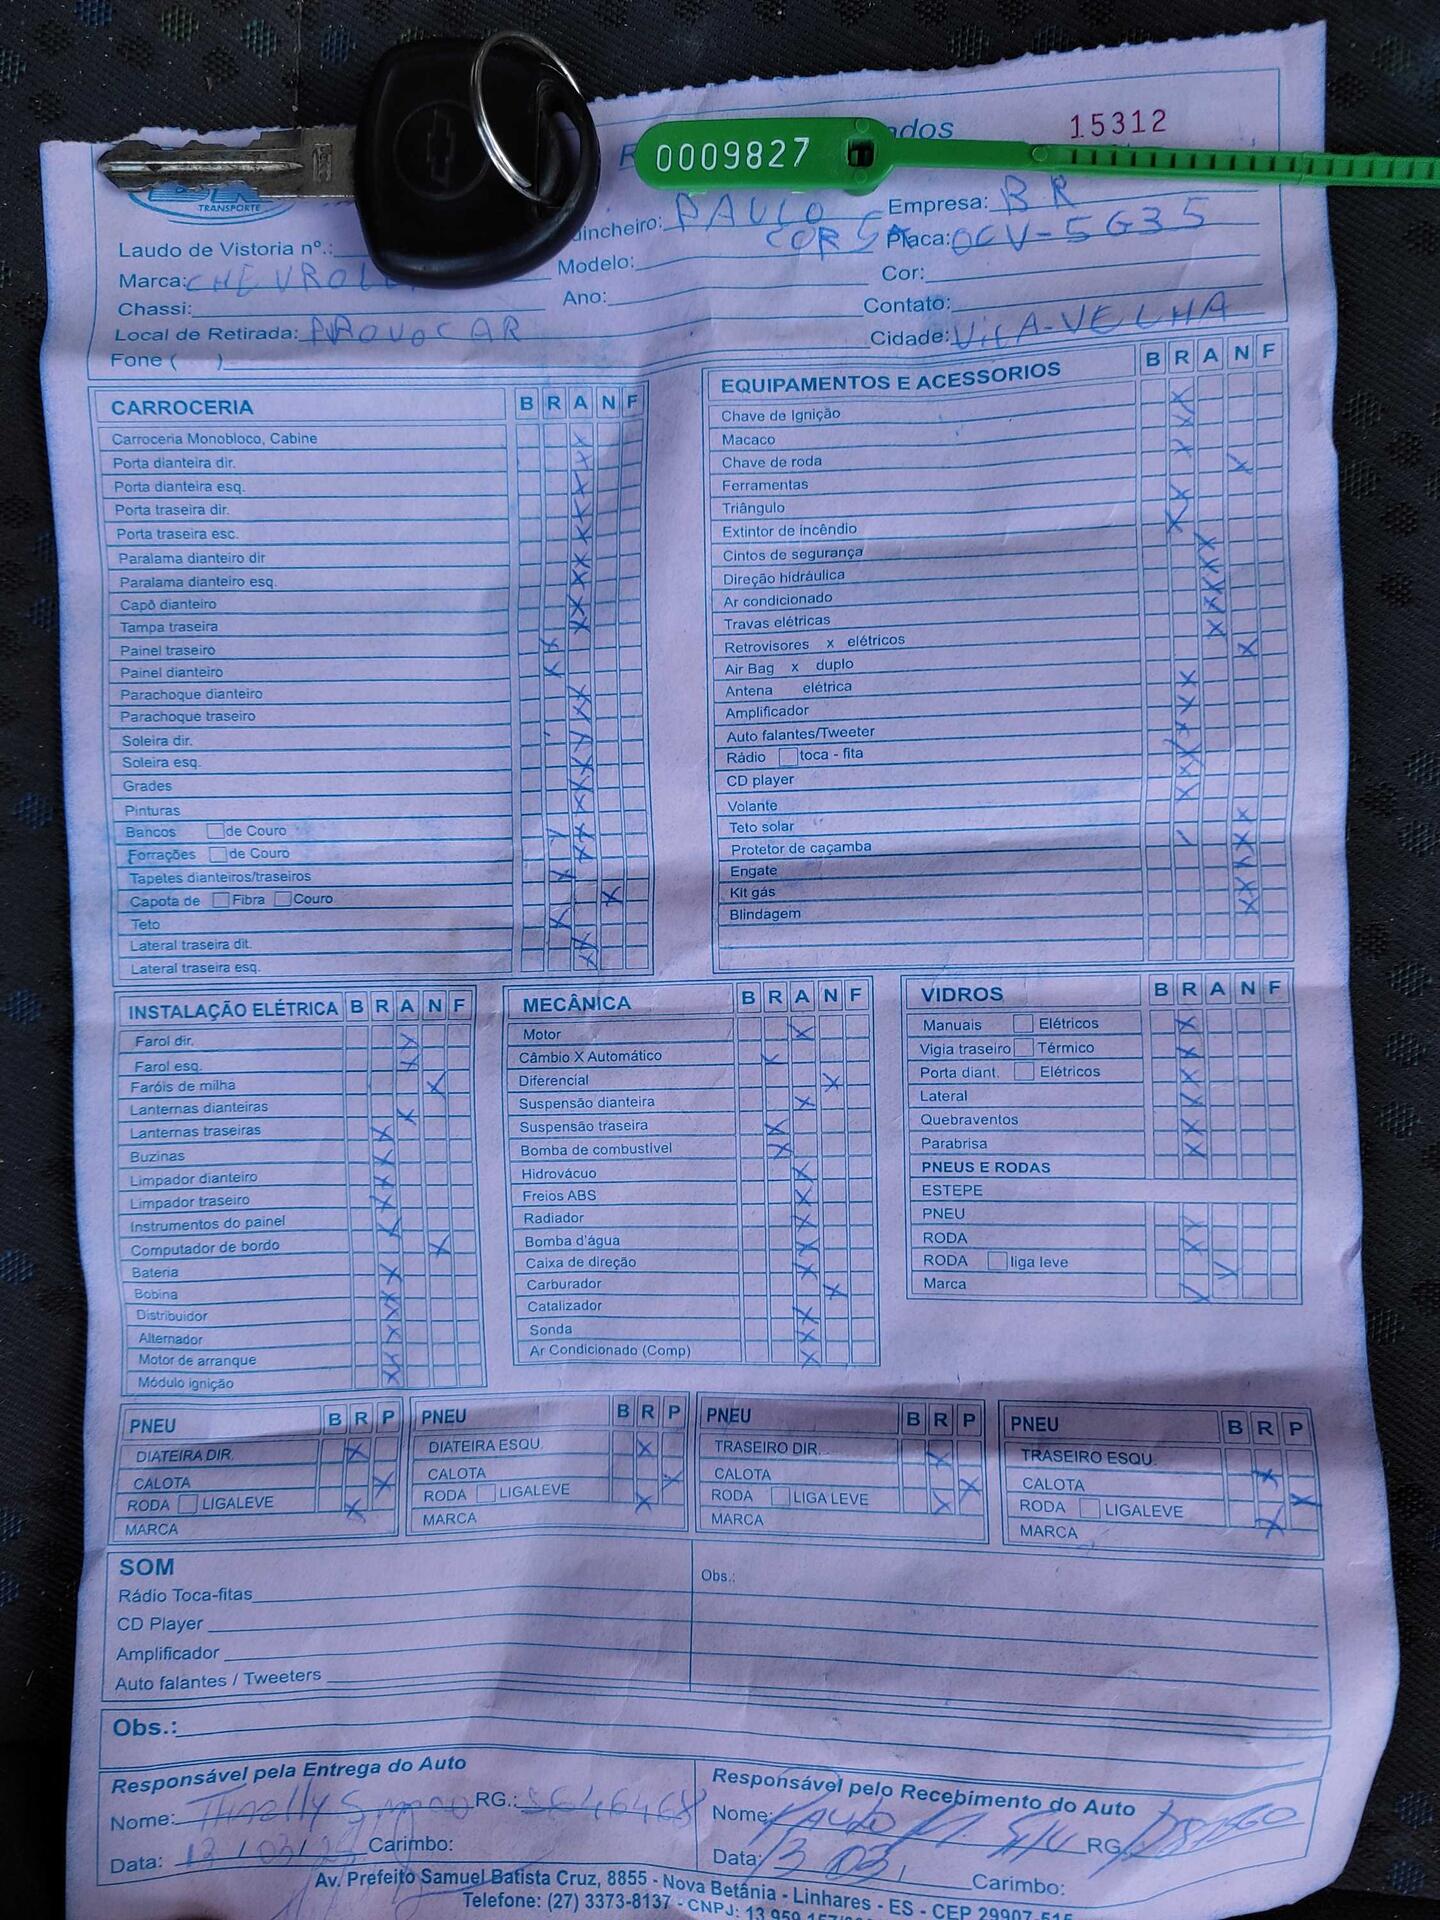 ados 15312
0009827
TRANSPORTE
uincheiro: PAULO Empresa: BR
Laudo de Vistoria nº.: CORSA Placa: OCV-5G35
Marca: CHEVROLE Modelo: Cor:
Chassi: Ano: Contato:
Local de Retirada: PROVOCAR Cidade: VILA-VELHA
Fone ( )
CARROCERIA B R A N F
Carroceria Monobloco, Cabine X
Porta dianteira dir. X
Porta dianteira esq. X
Porta traseira dir. X
Porta traseira esc. X
Paralama dianteiro dir X
Paralama dianteiro esq. X
Capô dianteiro X
Tampa traseira X
Painel traseiro X
Painel dianteiro X
Parachoque dianteiro X
Parachoque traseiro X
Soleira dir. X
Soleira esq. X
Grades X
Pinturas X
Bancos de Couro X
Forrações de Couro X
Tapetes dianteiros/traseiros X
Capota de Fibra Couro X
Teto X
Lateral traseira dit. X
Lateral traseira esq. X
EQUIPAMENTOS E ACESSORIOS B R A N F
Chave de Ignição X
Macaco X
Chave de roda X
Ferramentas X
Triângulo X
Extintor de incêndio X
Cintos de segurança X
Direção hidráulica X
Ar condicionado X
Travas elétricas X
Retrovisores x elétricos X
Air Bag x duplo X
Antena elétrica X
Amplificador X
Auto falantes/Tweeter X
Rádio toca - fita X
CD player X
Volante X
Teto solar X
Protetor de caçamba X
Engate X
Kit gás X
Blindagem X
INSTALAÇÃO ELÉTRICA B R A N F
Farol dir. X
Farol esq. X
Faróis de milha X
Lanternas dianteiras X
Lanternas traseiras X
Buzinas X
Limpador dianteiro X
Limpador traseiro X
Instrumentos do painel X
Computador de bordo X
Bateria X
Bobina X
Distribuidor X
Alternador X
Motor de arranque X
Módulo ignição X
MECÂNICA B R A N F
Motor X
Câmbio X Automático X
Diferencial X
Suspensão dianteira X
Suspensão traseira X
Bomba de combustível X
Hidrovácuo X
Freios ABS X
Radiador X
Bomba d'água X
Caixa de direção X
Carburador X
Catalizador X
Sonda X
Ar Condicionado (Comp) X
VIDROS B R A N F
Manuais Elétricos X
Vigia traseiro Térmico X
Porta diant. Elétricos X
Lateral X
Quebraventos X
Parabrisa X
PNEUS E RODAS
ESTEPE
PNEU X
RODA X
RODA liga leve X
Marca X
PNEU B R P
DIATEIRA DIR. X
CALOTA X
RODA LIGALEVE X
MARCA
PNEU B R P
DIATEIRA ESQU. X
CALOTA X
RODA LIGALEVE X
MARCA
PNEU B R P
TRASEIRO DIR. X
CALOTA X
RODA LIGA LEVE X
MARCA
PNEU B R P
TRASEIRO ESQU. X
CALOTA X
RODA LIGALEVE X
MARCA
SOM
Rádio Toca-fitas
CD Player
Amplificador
Auto falantes / Tweeters
Obs.:
Obs.:
Responsável pela Entrega do Auto
Nome: RG.:
Data: 13/03/ Carimbo:
Responsável pelo Recebimento do Auto
Nome: Paulo RG
Data: 13 03 Carimbo:
Av. Prefeito Samuel Batista Cruz, 8855 - Nova Betânia - Linhares - ES - CEP 29907-515
Telefone: (27) 3373-8137 - CNPJ: 13.959.157/